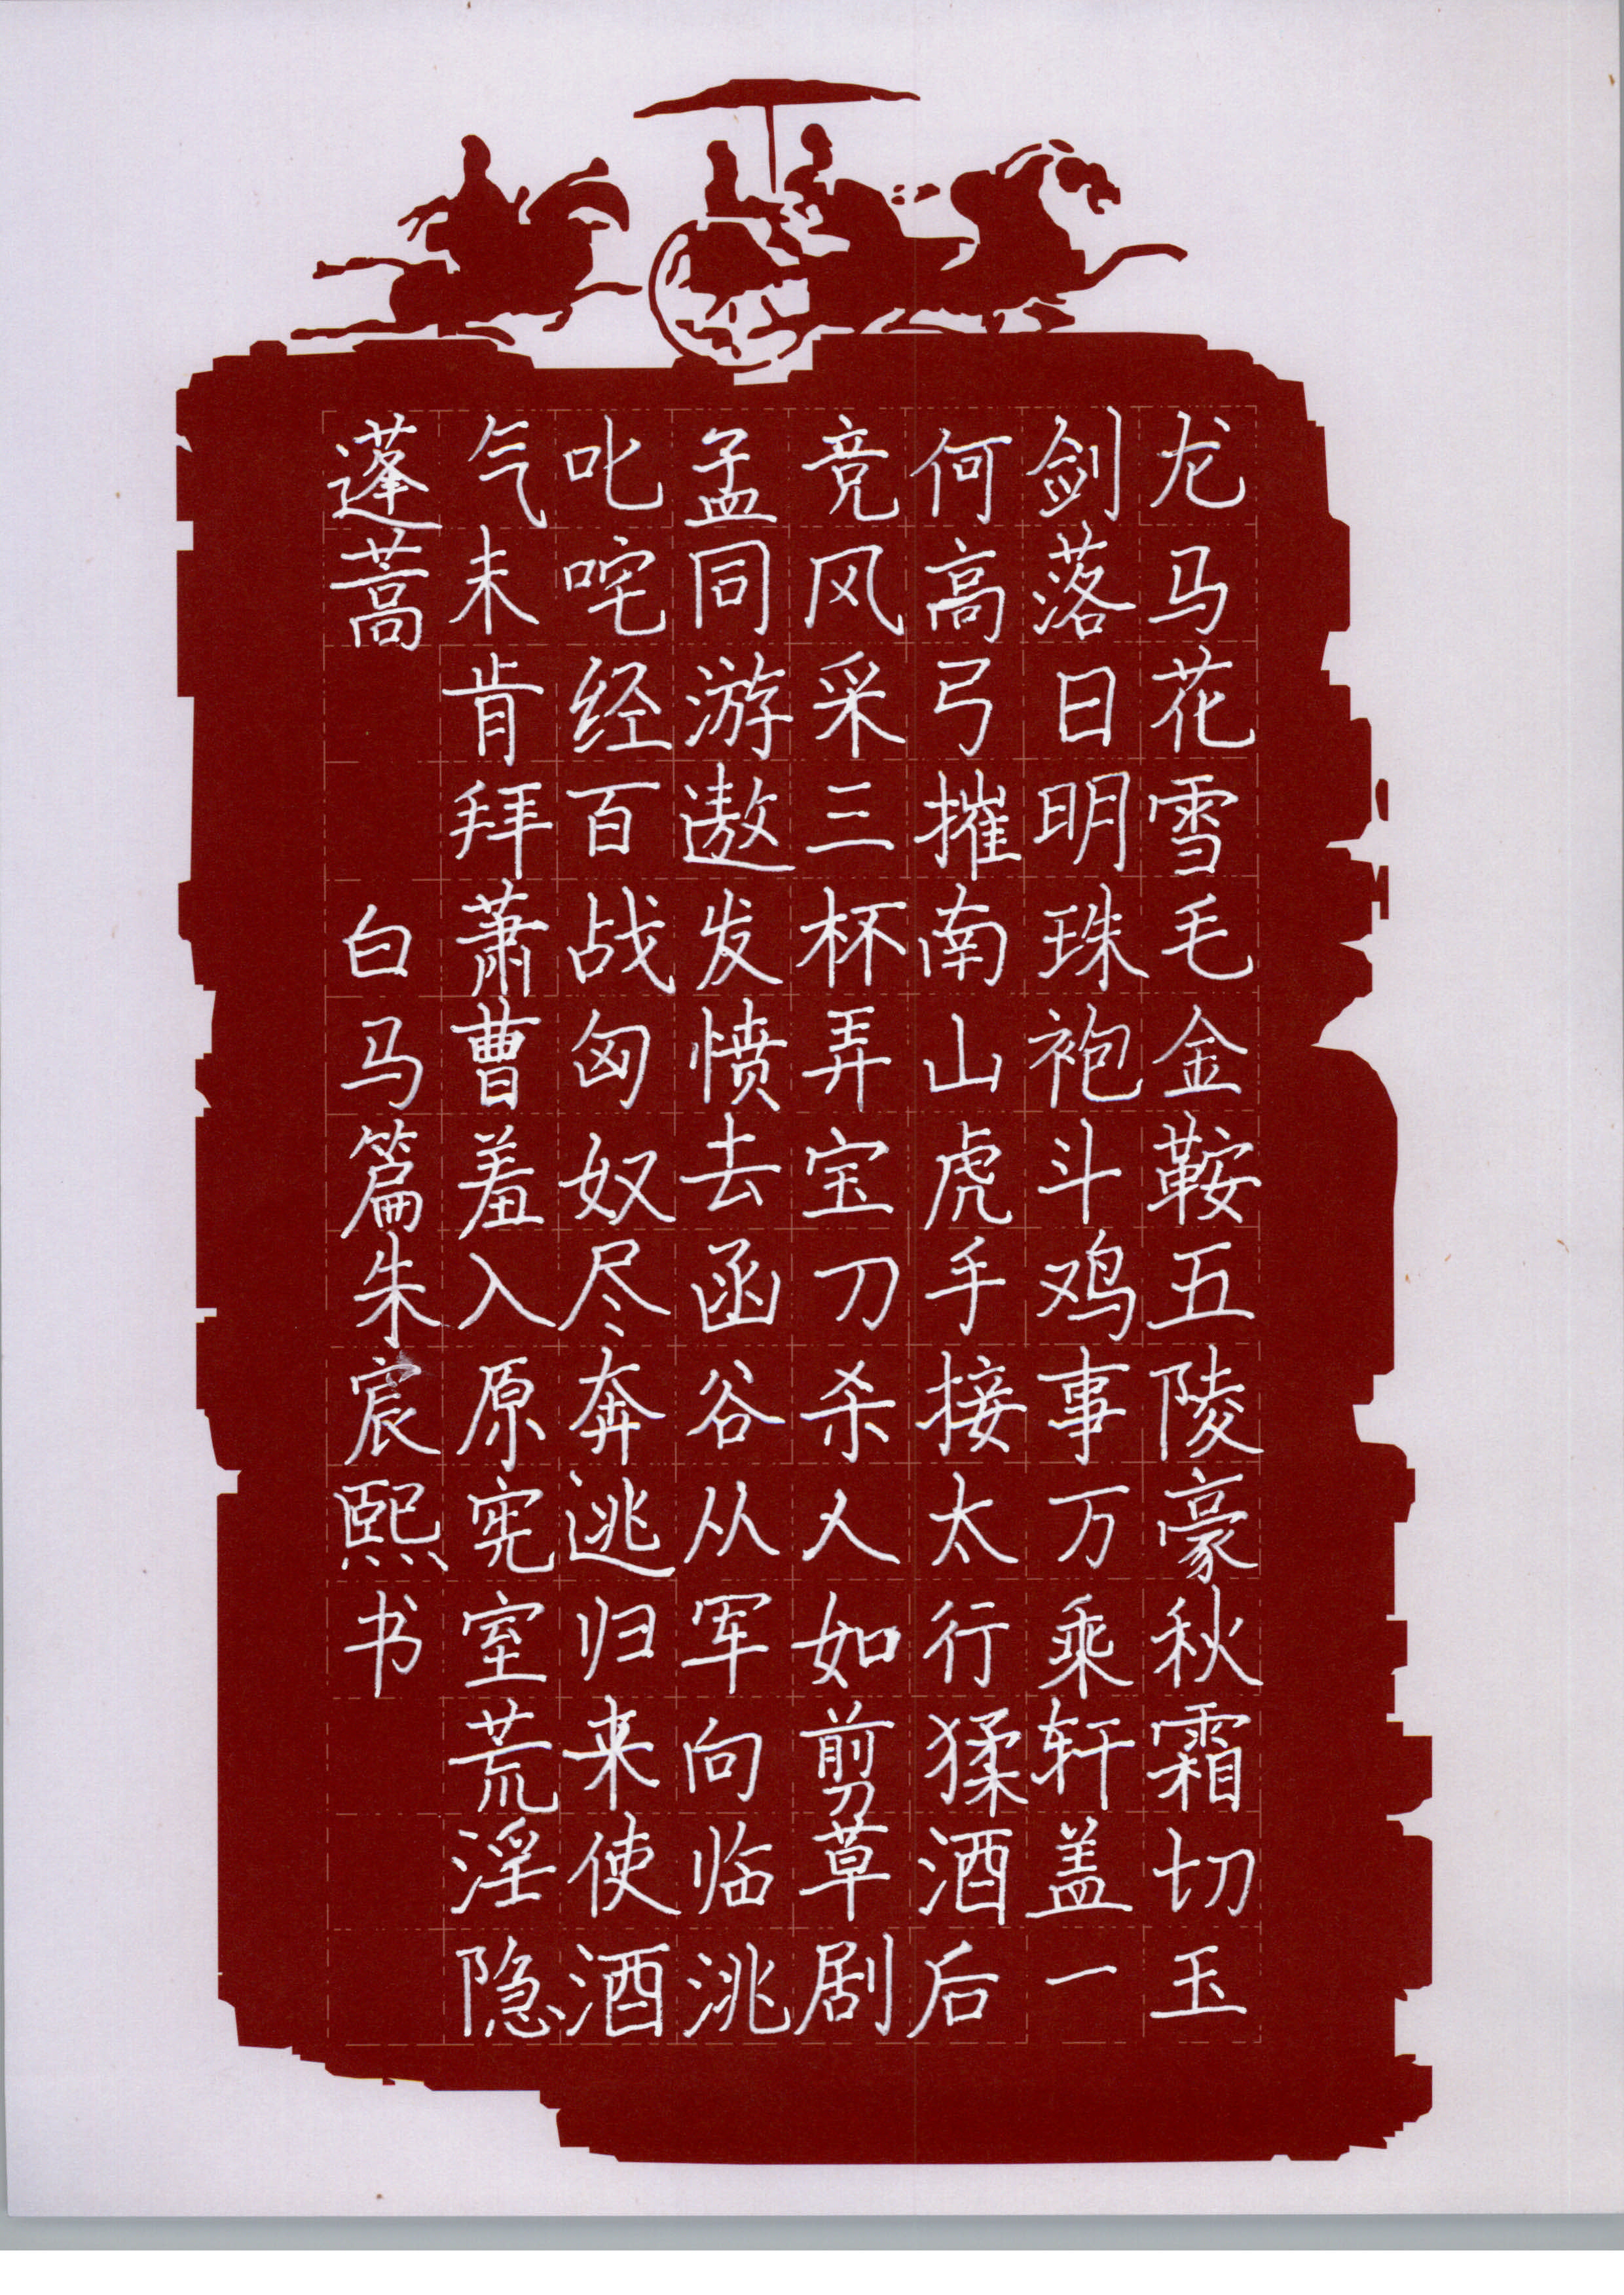 龙马花雪毛金鞍五陵豪秋霜切玉
剑落日明珠袍斗鸡事万乘轩盖一
何高弓摧南山虎手接太行猱酒后
竞风采三杯弄宝刀杀人如剪草剧
孟同游遨发愤去函谷从军向临洮
叱咤经百战匈奴尽奔逃归来使酒
气未肯拜萧曹羞入原宪室荒淫隐
蓬蒿
白马篇朱宸熙书